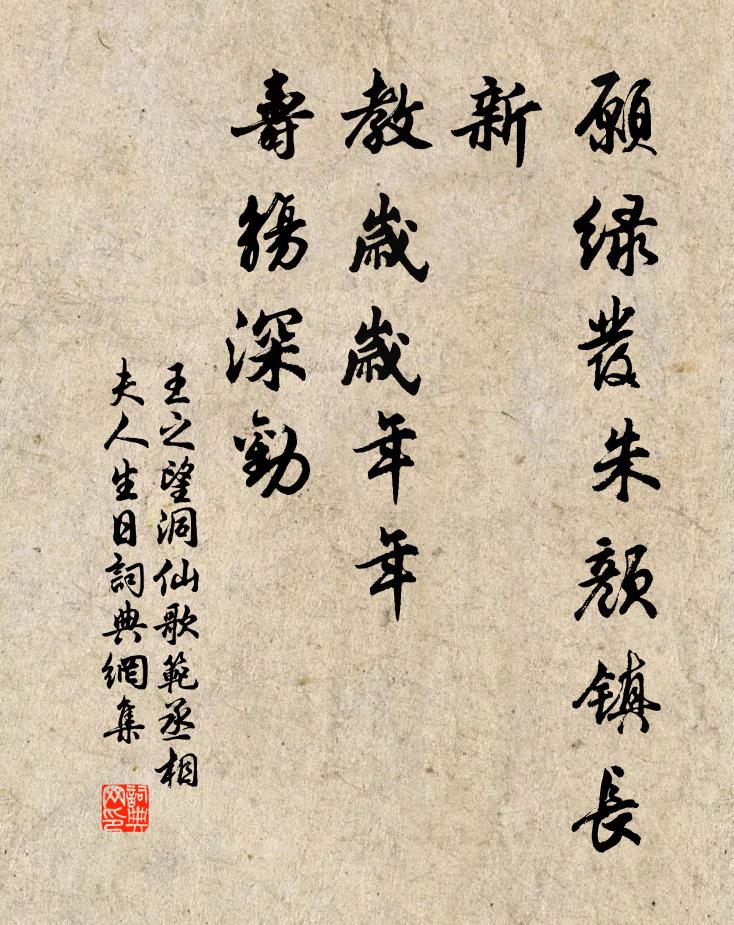 願緑發朱顔镇長
新
教歲歲年年
壽觴深勸
王之望洞仙歌範丞相
夫人生日詞典網集
詞典
网印